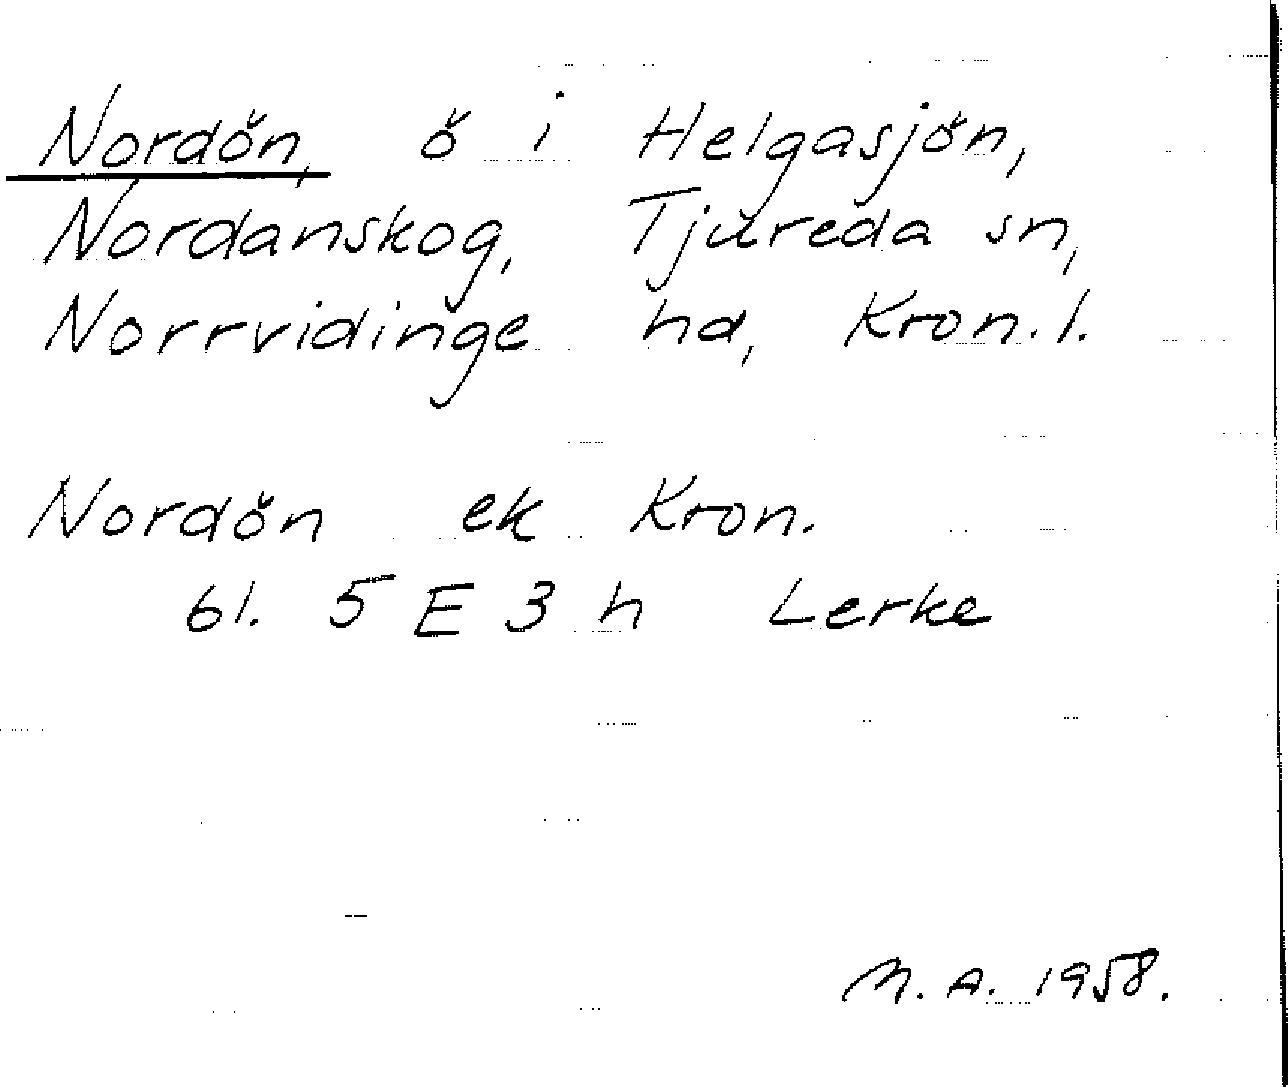 Nordön, ö i Helgasjön,
Nordanskog, Tjureda sn,
Norrvidinge hd, Kron.l.
Nordön ek Kron.
61. 5 E 3 h Lerke
M. A. 1958.